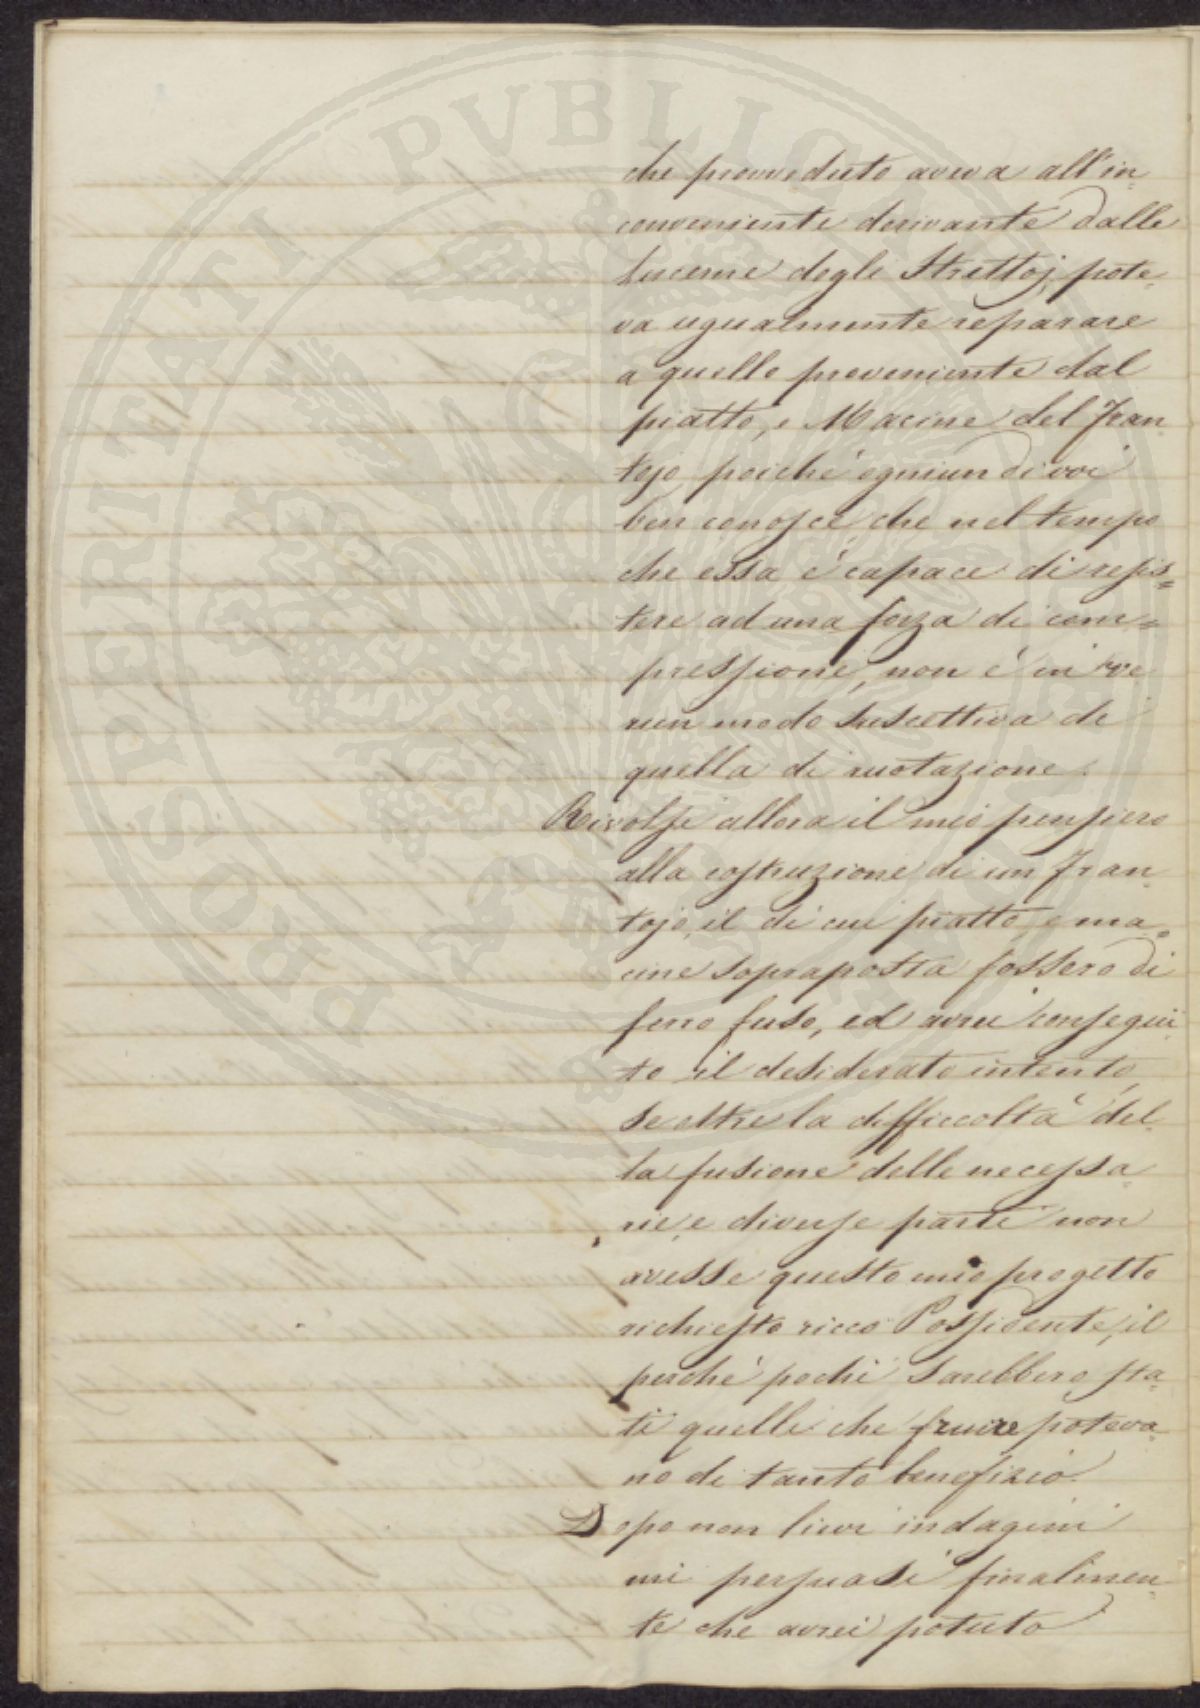 PROSPERITATI PUBLICAE
che provveduto aveva all'in=
conveniente derivante dalle
lucerne degli Strettoj, pote=
va ugualmente reparare
a quello proveniente dal
piatto, e Macine del Fran
tojo, poiché ogniun di voi
ben conosce, che nel tempo
che essa è capace di resis=
tere ad una forza di com=
pressione, non è in ve
run modo suscettiva di
quella di ruotazione.
Rivolsi allora il mio pensiero
alla costruzione di un Fran=
tojo, il di cui piatto, e ma=
cine sopraposta fossero di
ferro fuso, ed avrei consegui
to il desiderato intento,
se oltre la difficcoltà del=
la fusione delle necessa=
rie, e diverse parti non
avesse questo mio progetto
richiesto ricco Possidente, il
perché pochi sarebbero sta=
ti quelli che fruire poteva=
no di tanto benefizio.
Dopo non lievi indagini
mi persuasi finalmen=
te che avrei potuto